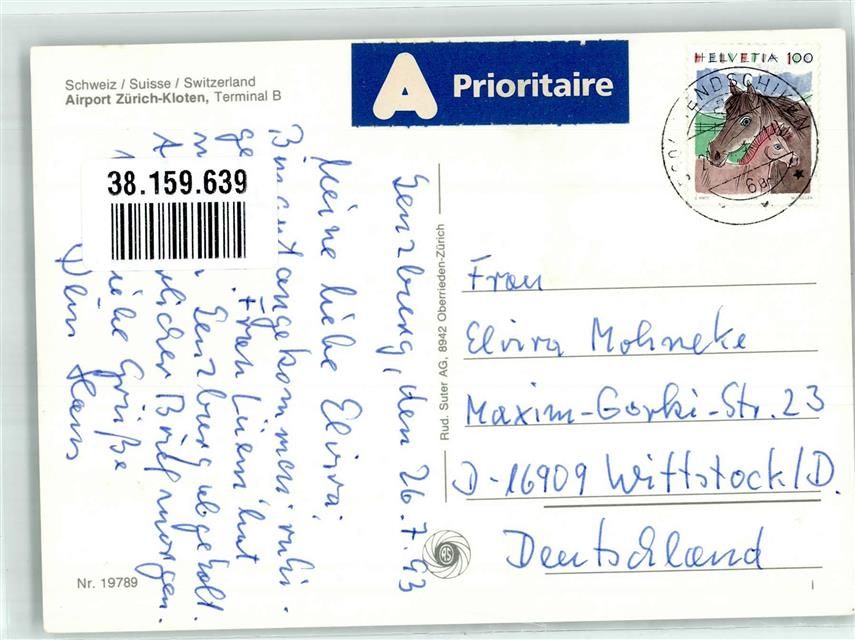 Schweiz / Suisse / Switzerland
Airport Zürich-Kloten, Terminal B
A Prioritaire
HELVETIA 100
38.159.639
Lenzburg, den 26.7.93
Meine liebe Elvira,
Bin gut angekommen. ruhi-
ge Frau Lüem hat
Lenzburg abgeholt.
licher Brief morgen.
liebe Grüße
Dein Hans
Rud. Suter AG, 8942 Oberrieden-Zürich
Frau
Elvira Mohneke
Maxim-Gorki-Str. 23
D-16909 Wittstock/D.
Deutschland
Nr. 19789